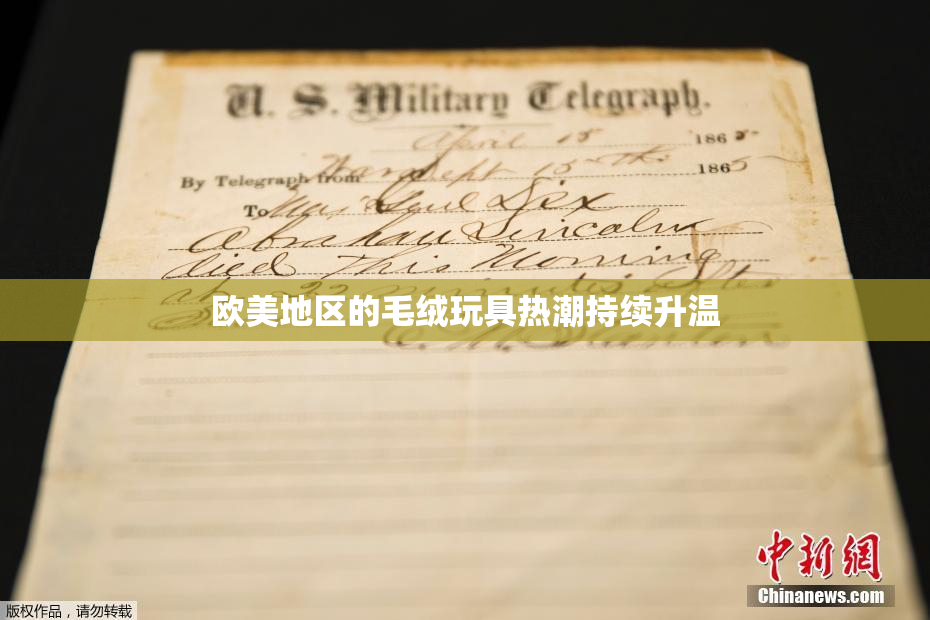 U. S. Military Telegraph.
April 15 1865
By Telegraph from War Dept 15th 1865
To Maj Genl Dix
Abraham Lincoln
died This Morning
at 22 minutes after
欧美地区的毛绒玩具热潮持续升温
E. M. Stanton
中新网
Chinanews.com
版权作品，请勿转载